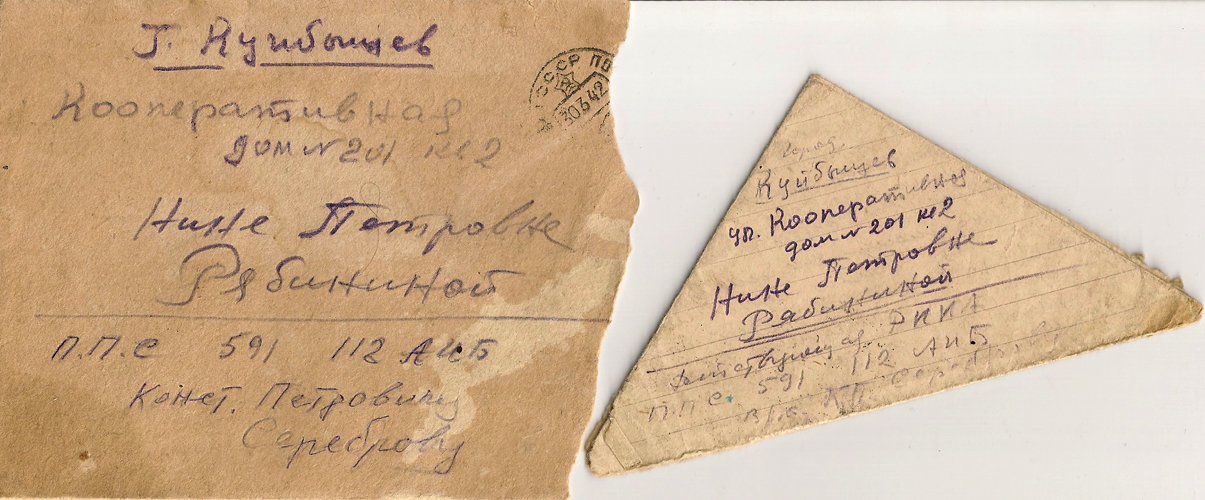 г. Куйбышев
Кооперативная
дом N 201 кв 2
Нине Петровне
Рябининой
П.П.С 591 112 АИБ
Конст. Петровичу
Сереброву
СССР ПО
30.3.42
город
Куйбышев
ул. Кооперативная
дом N 201 кв 2
Нине Петровне
Рябининой
Действующая РККА
П.П.С 591 112 АИБ
К.П. Серебров